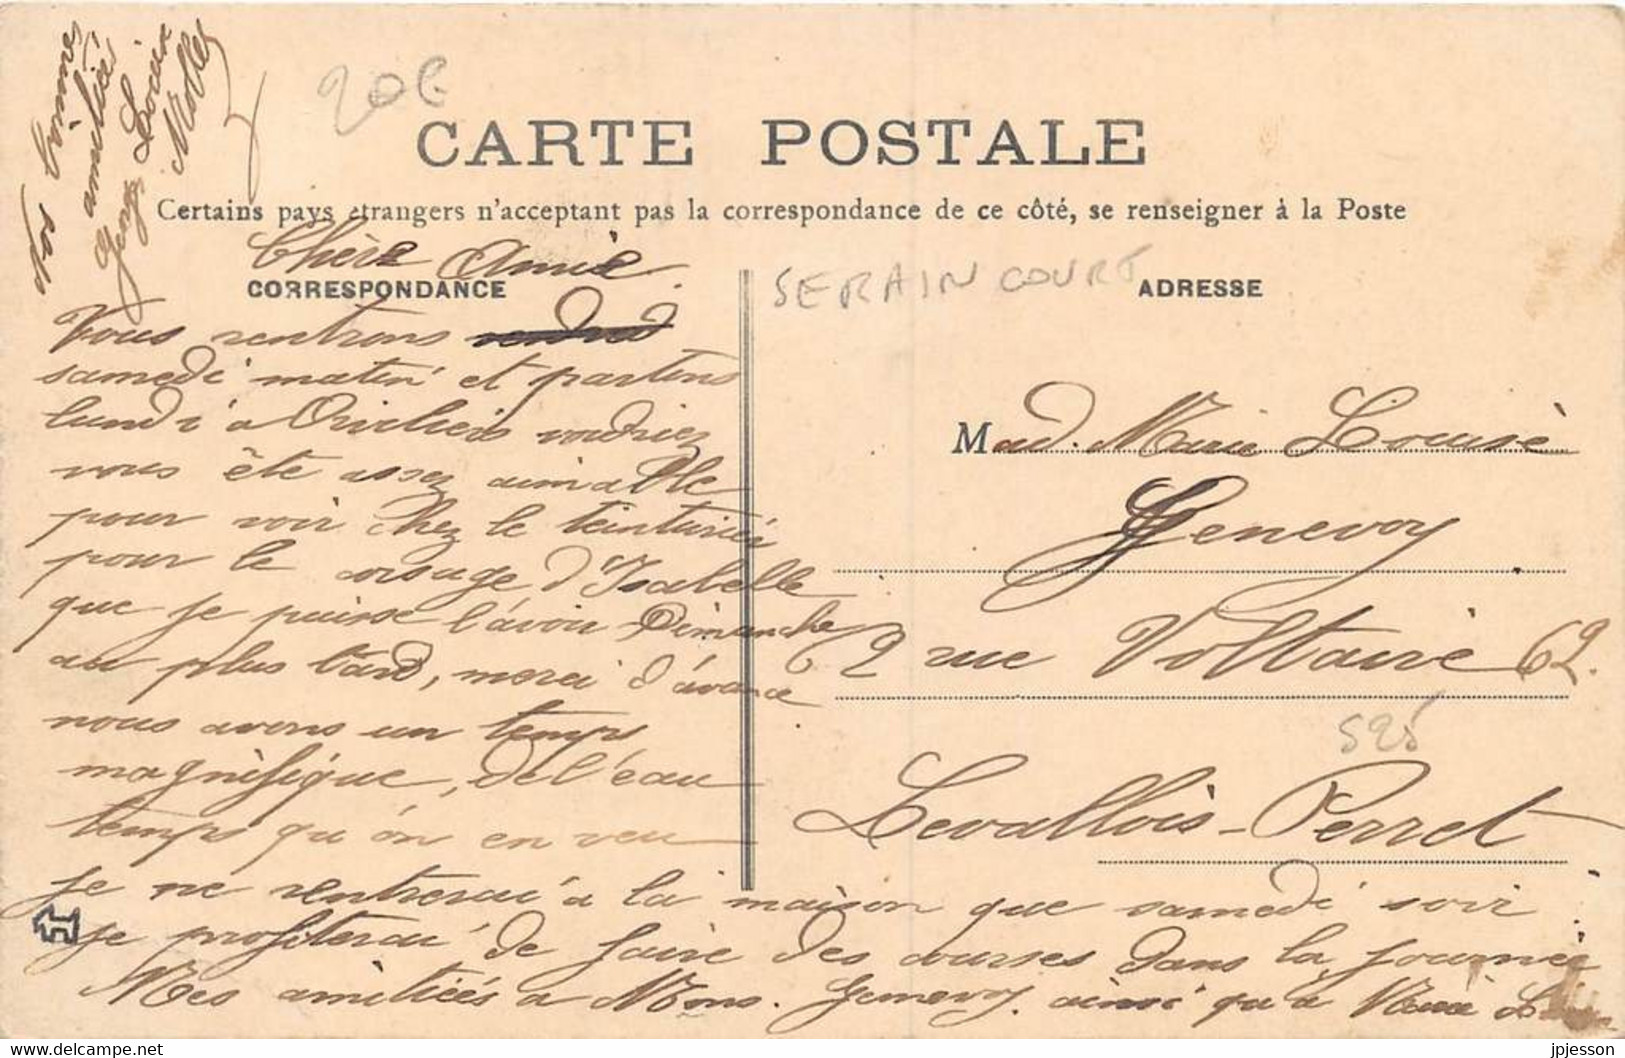 20€
CARTE POSTALE
Certains pays étrangers n'acceptant pas la correspondance de ce côté, se renseigner à la Poste
CORRESPONDANCE
ADRESSE
SERAINCOURT
Chère Amie
Nous rentrons
samedi matin et partons
lundi a voudriez
vous ête assez aimable
pour voir chez le teinturié
pour le corsage d'Isabelle
que je puisse l'avoir Dimanche
au plus tard, merci d'avance
nous avons un temps
magnifique, de l'eau
temps qu'on en veu
je ne rentrerai a la maison que samedi soir
je profiterai de faire des courses dans la journée
Mes amitiées a Mons. Genevoy. ainsi qu'a
bonnes
amitiés
Mad. Marie Louise
Genevoy
62 rue Voltaire 62.
525
Levallois-Perret
jpjesson